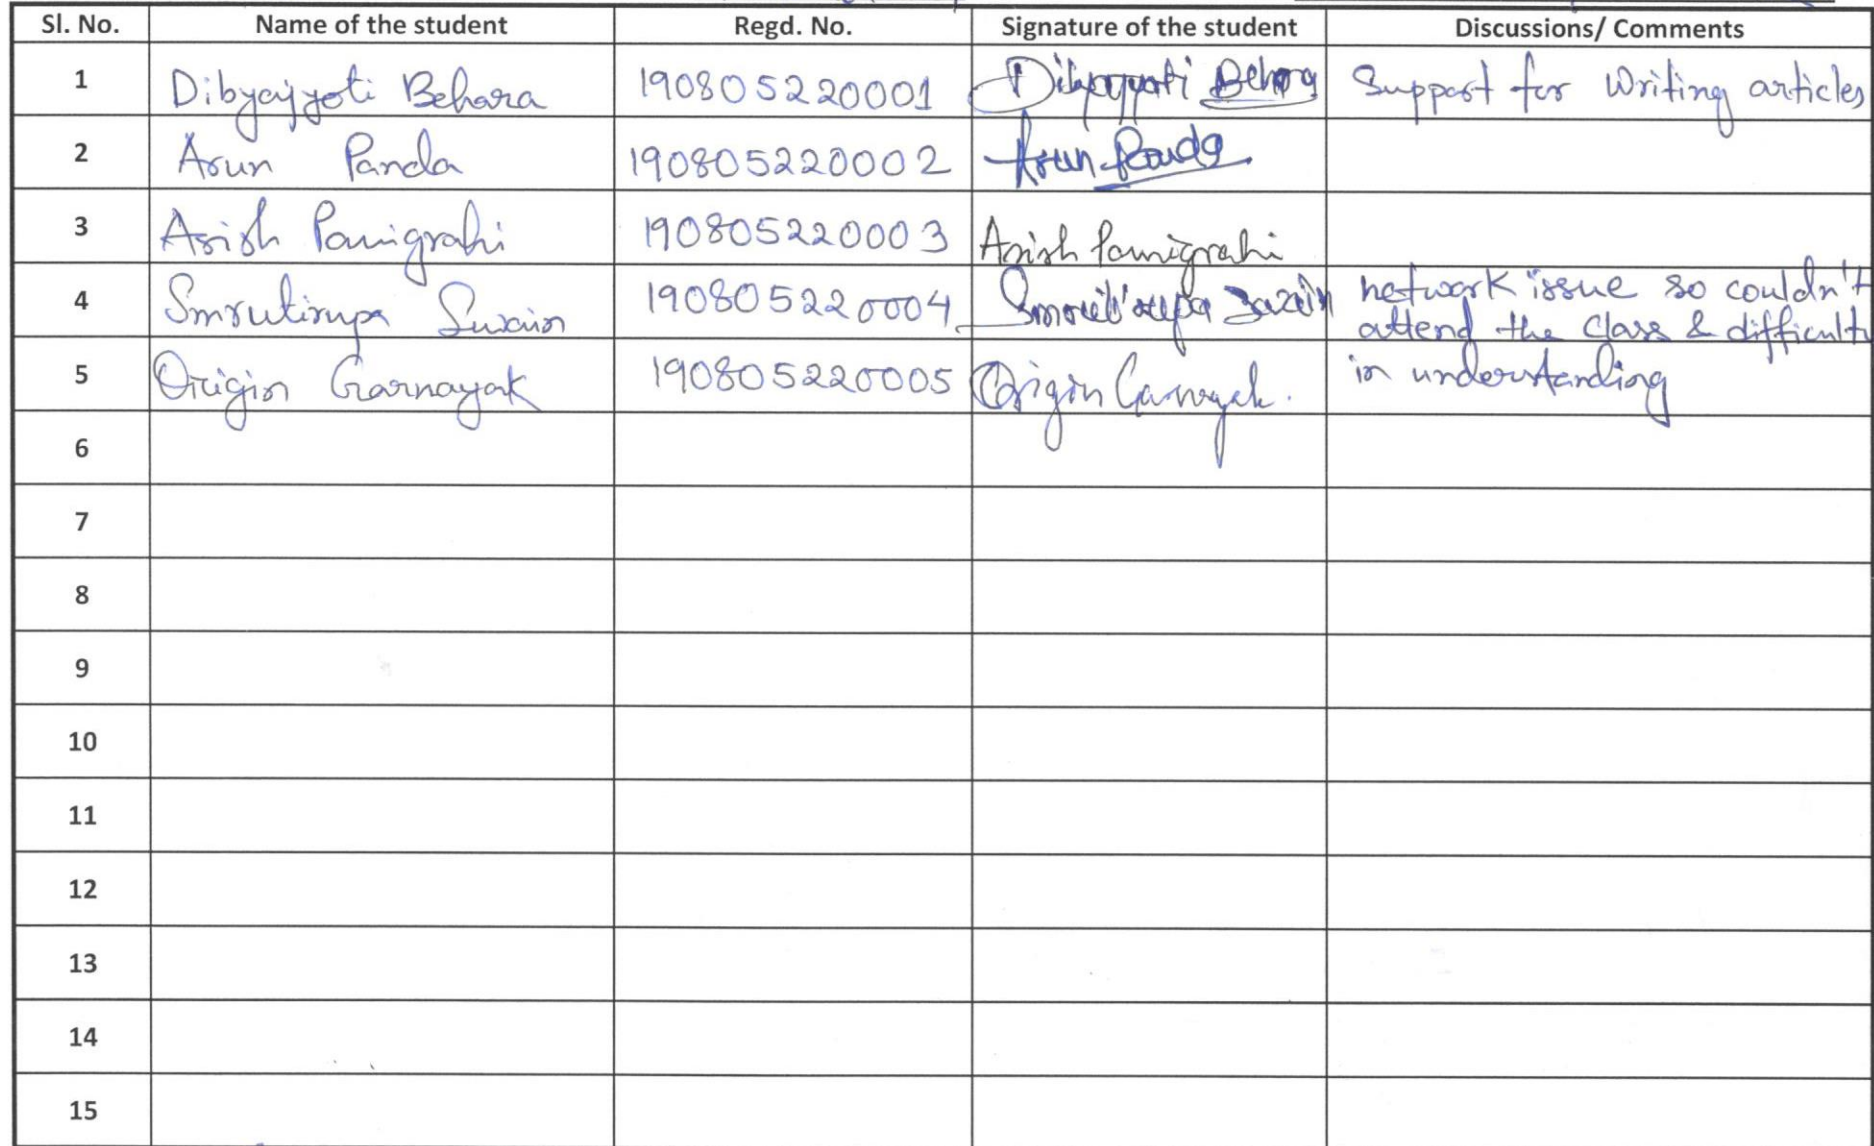 Sl. No. Name of the student Regd. No. Signature of the student Discussions/ Comments
1 Dibyajyoti Behara 190805220001 Dibyajyoti Behara Support for Writing articles
2 Arun Panda 190805220002 Arun Panda
3 Asish Panigrahi 190805220003 Asish Panigrahi
4 Smrutirupa Swain 190805220004 Smrutirupa Swain network issue so couldn't
attend the class & difficulty
5 Origin Garnayak 190805220005 Origin Garnayak. in understanding
6
7
8
9
10
11
12
13
14
15